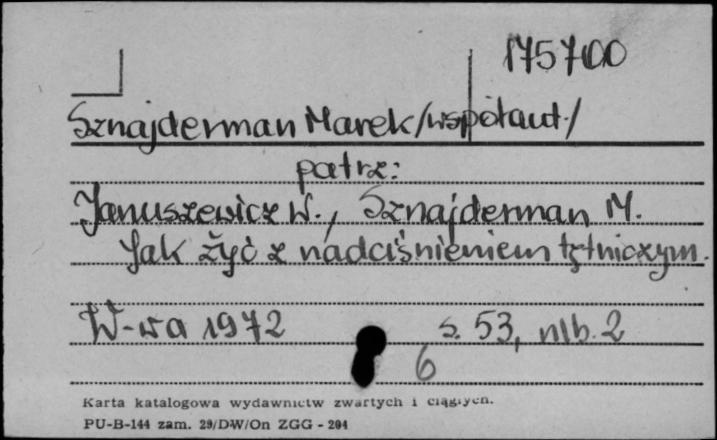 175700
Sznajderman Marek/współaut./
patrz:
Januszewicz W., Sznajderman M.
Jak żyć z nadciśnieniem tętniczym.
W-wa 1972 s. 53, nlb. 2
6
Karta katalogowa wydawnictw zwartych i ciągłych.
PU-B-144 zam. 29/D-W/On ZGG - 204